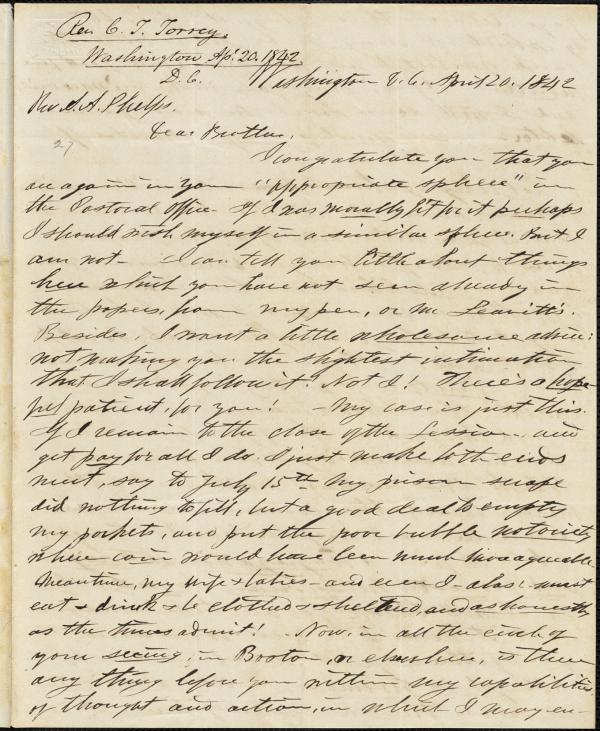 Rev. C. T. Torrey,
Washington Ap! 20. 1842
D. C.
Washington D. C. April 20. 1842
Rev. A. A. Phelps.
Dear Brother,
27
I congratulate you that you
are again in your "appropriate sphere" in
the Pastoral Office. If I was morally fit for it perhaps
I should wish myself in a similar sphere. But I
am not— I can tell you little about things
here which you have not seen already in
the papers, from my pen, or Mr Leavitt's.
Besides, I want a little wholesome advice:
not making you the slightest intimation
that I shall follow it! Not I! There's a hope-
ful patient, for you! — My case is just this.
If I remain to the close of the Session, and
get pay for all I do. I just make both ends
meet, say to July 15th My prison scrape
did nothing to fill, but a good deal to empty
my pockets, and put the poor bubble notoriety
where coin would have been much more agreeable
Meantime, my wife & babies—and even I—alas! must
eat & drink & be clothed & sheltered, and as honestly
as the times admit! Now, in all the circle of
your seeing, in Boston, or elsewhere, is there
any thing before you within my capabilities
of thought and action, in which I may en-